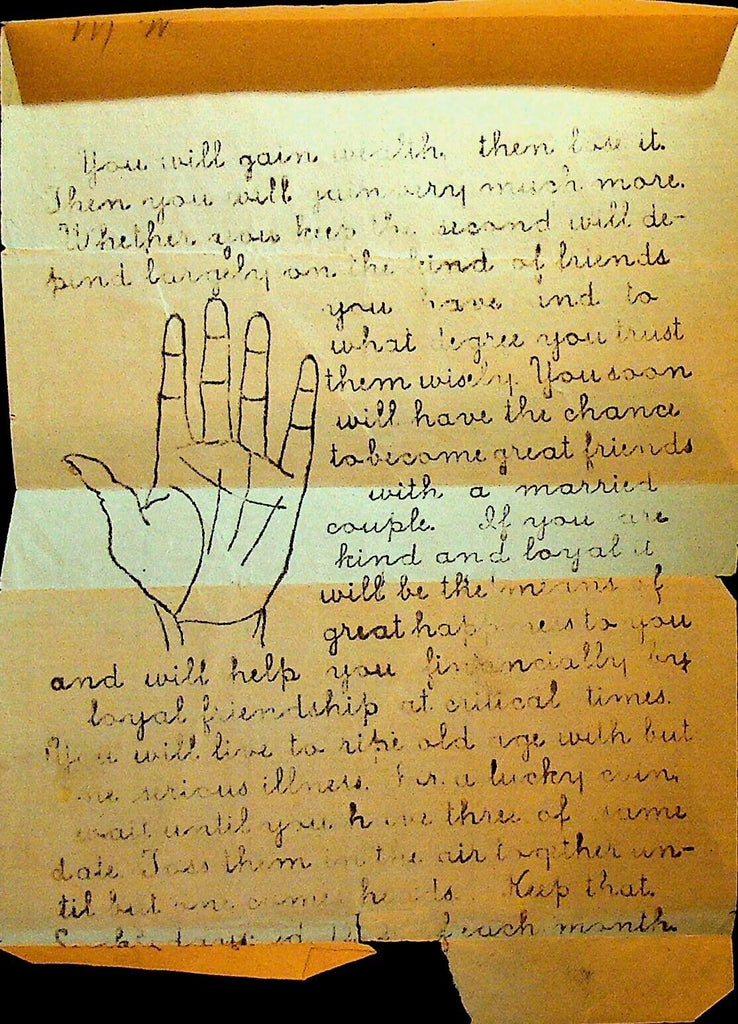 You will gain wealth, then lose it.
Then you will gain very much more.
Whether you keep the second will de-
pend largely on the kind of friends
you have and to
what degree you trust
them wisely. You soon
will have the chance
to become great friends
with a married
couple. If you are
kind and loyal it
will be the means of
great happiness to you
and will help you financially by
loyal friendship at critical times.
You will live to ripe old age with but
one serious illness. For a lucky coin,
wait until you have three of same
date. Toss them in the air together un-
til but one comes heads. Keep that.
of each month.